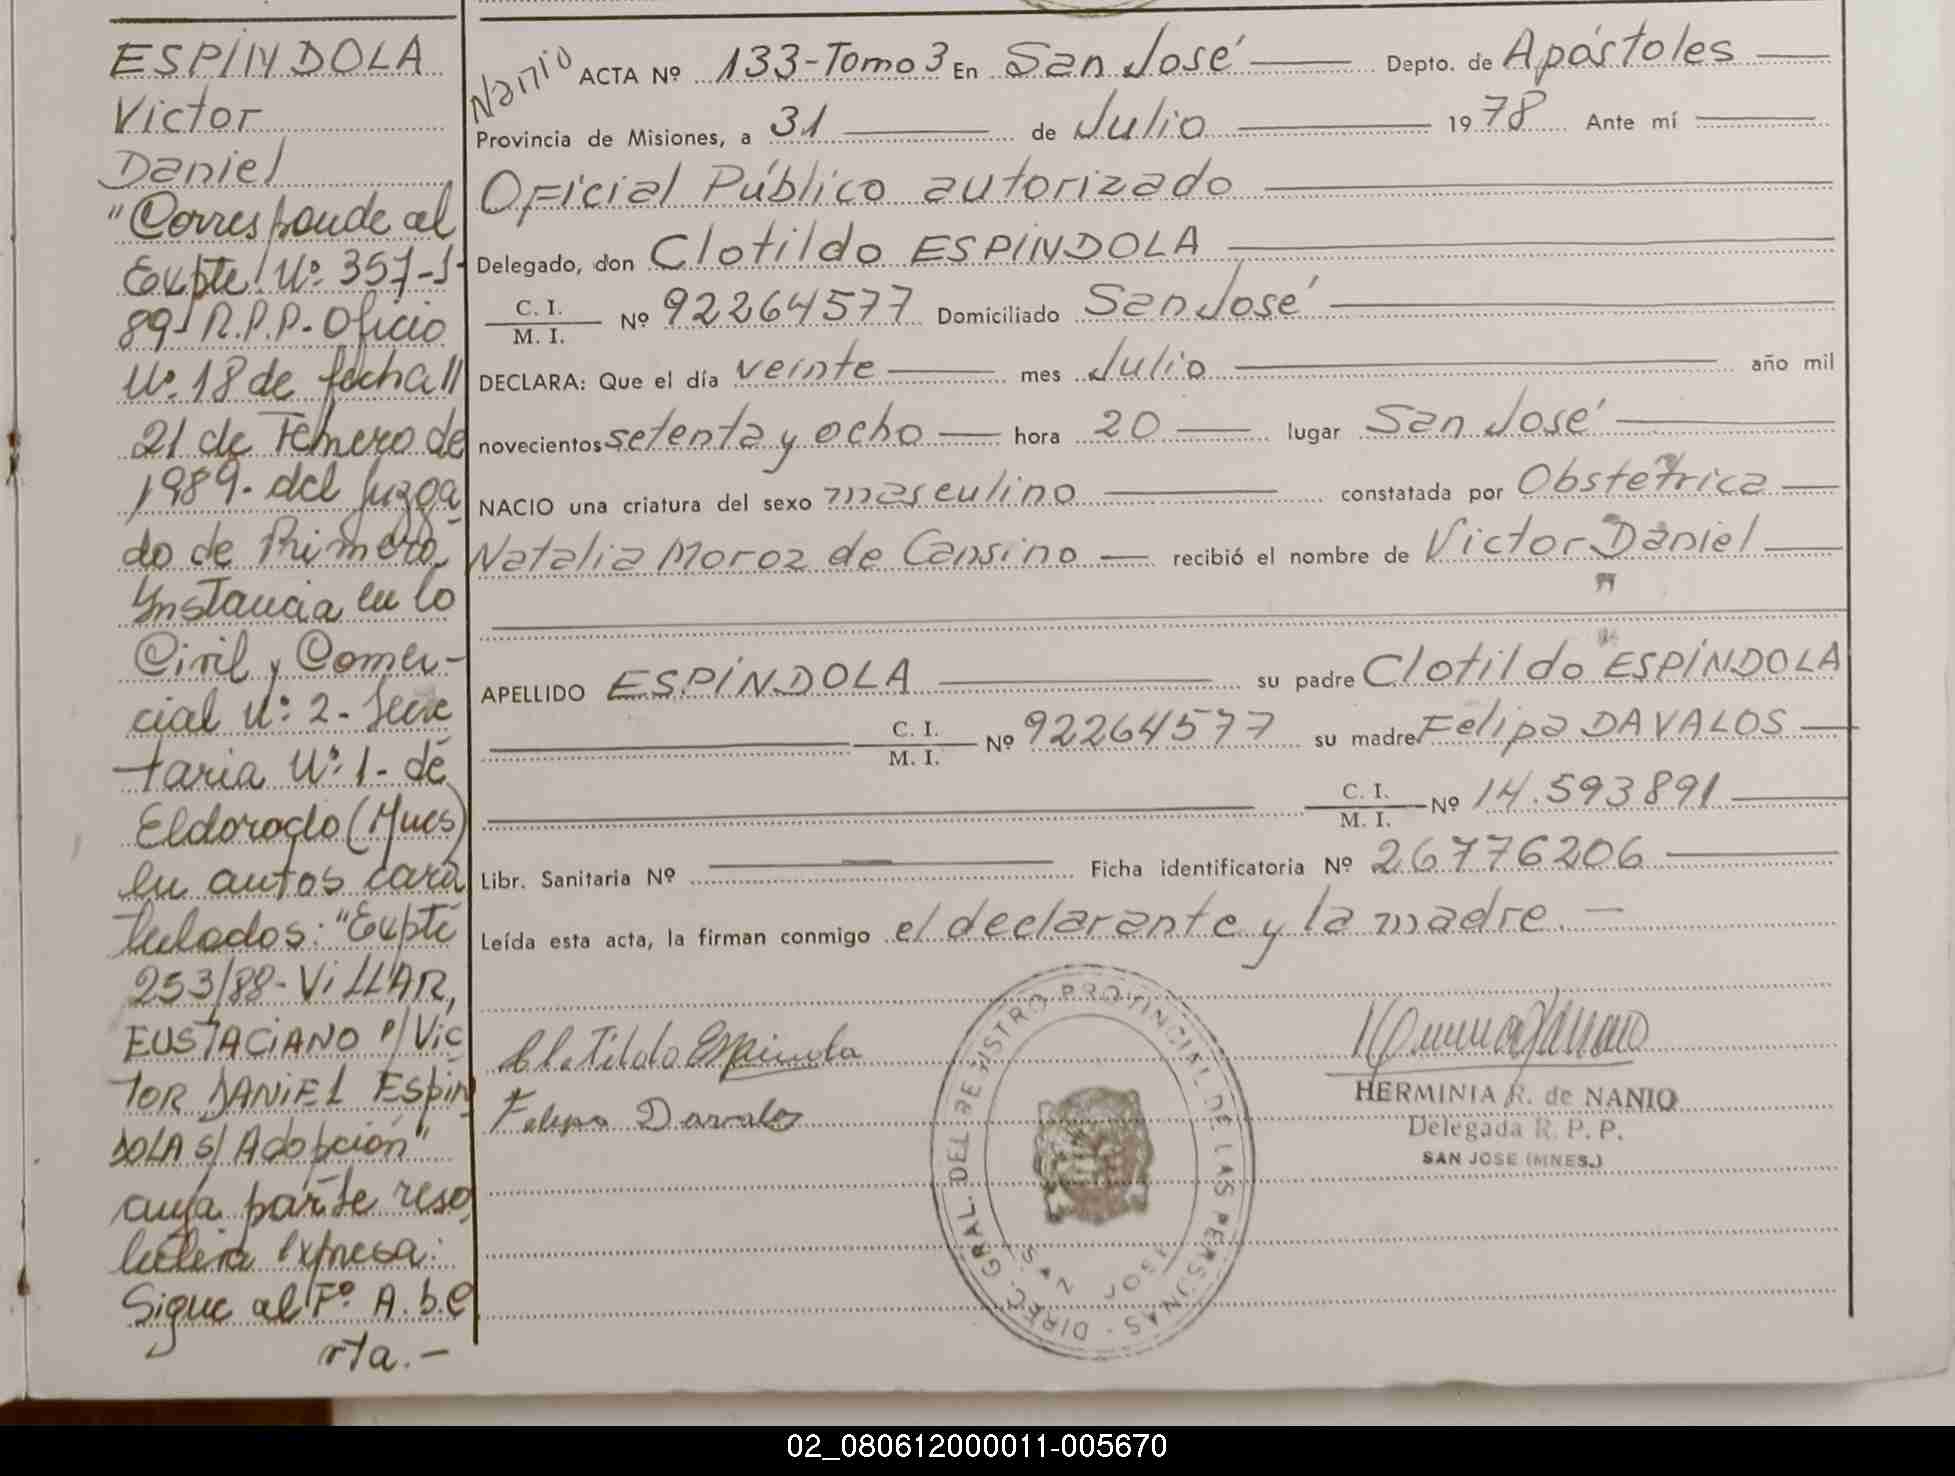 ESPÍNDOLA
Victor
Daniel
"Corresponde al
Expte. Nº 357-J-
89-R.P.P.-Oficio
Nº 18 de fecha //
21 de Febrero de
1989.- del Juzga
do de Primera
Instancia en lo
Civil y Comer-
cial Nº 2 - Secre
taria Nº 1 - de
Eldorado (Mnes)
en autos cara
tulados: "Expte
253/88 - VILLAR,
EUSTACIANO P/ VIC
TOR DANIEL ESPIN
DOLA S/ Adopción"
cuya parte reso
lutiva expresa:
Sigue al Fº. A.b.e
rta.-
Nanio
ACTA Nº 133-Tomo 3 En San José Depto. de Apóstoles
Provincia de Misiones, a 31 de Julio 1978 Ante mí
Oficial Público autorizado
Delegado, don Clotildo ESPÍNDOLA
C. I.
M. I. Nº 92264577 Domiciliado San José
DECLARA: Que el día veinte mes Julio año mil
novecientos setenta y ocho hora 20 lugar San José
NACIO una criatura del sexo masculino constatada por Obstetrica
Natalia Moroz de Cansino recibió el nombre de Victor Daniel
APELLIDO ESPÍNDOLA su padre Clotildo ESPÍNDOLA
C. I.
M. I. Nº 92264577 su madre Felipa DAVALOS
C. I.
M. I. Nº 14.593891
Libr. Sanitaria Nº Ficha identificatoria Nº 26776206
Leída esta acta, la firman conmigo el declarante y la madre.-
Clotildo Espindola
Felipa Davalos
DIREC. GRAL. DEL REGISTRO PROVINCIAL DE LAS PERSONAS -
SAN JOSE
HERMINIA R. de NANIO
Delegada R. P. P.
SAN JOSE (MNES.)
02_080612000011-005670